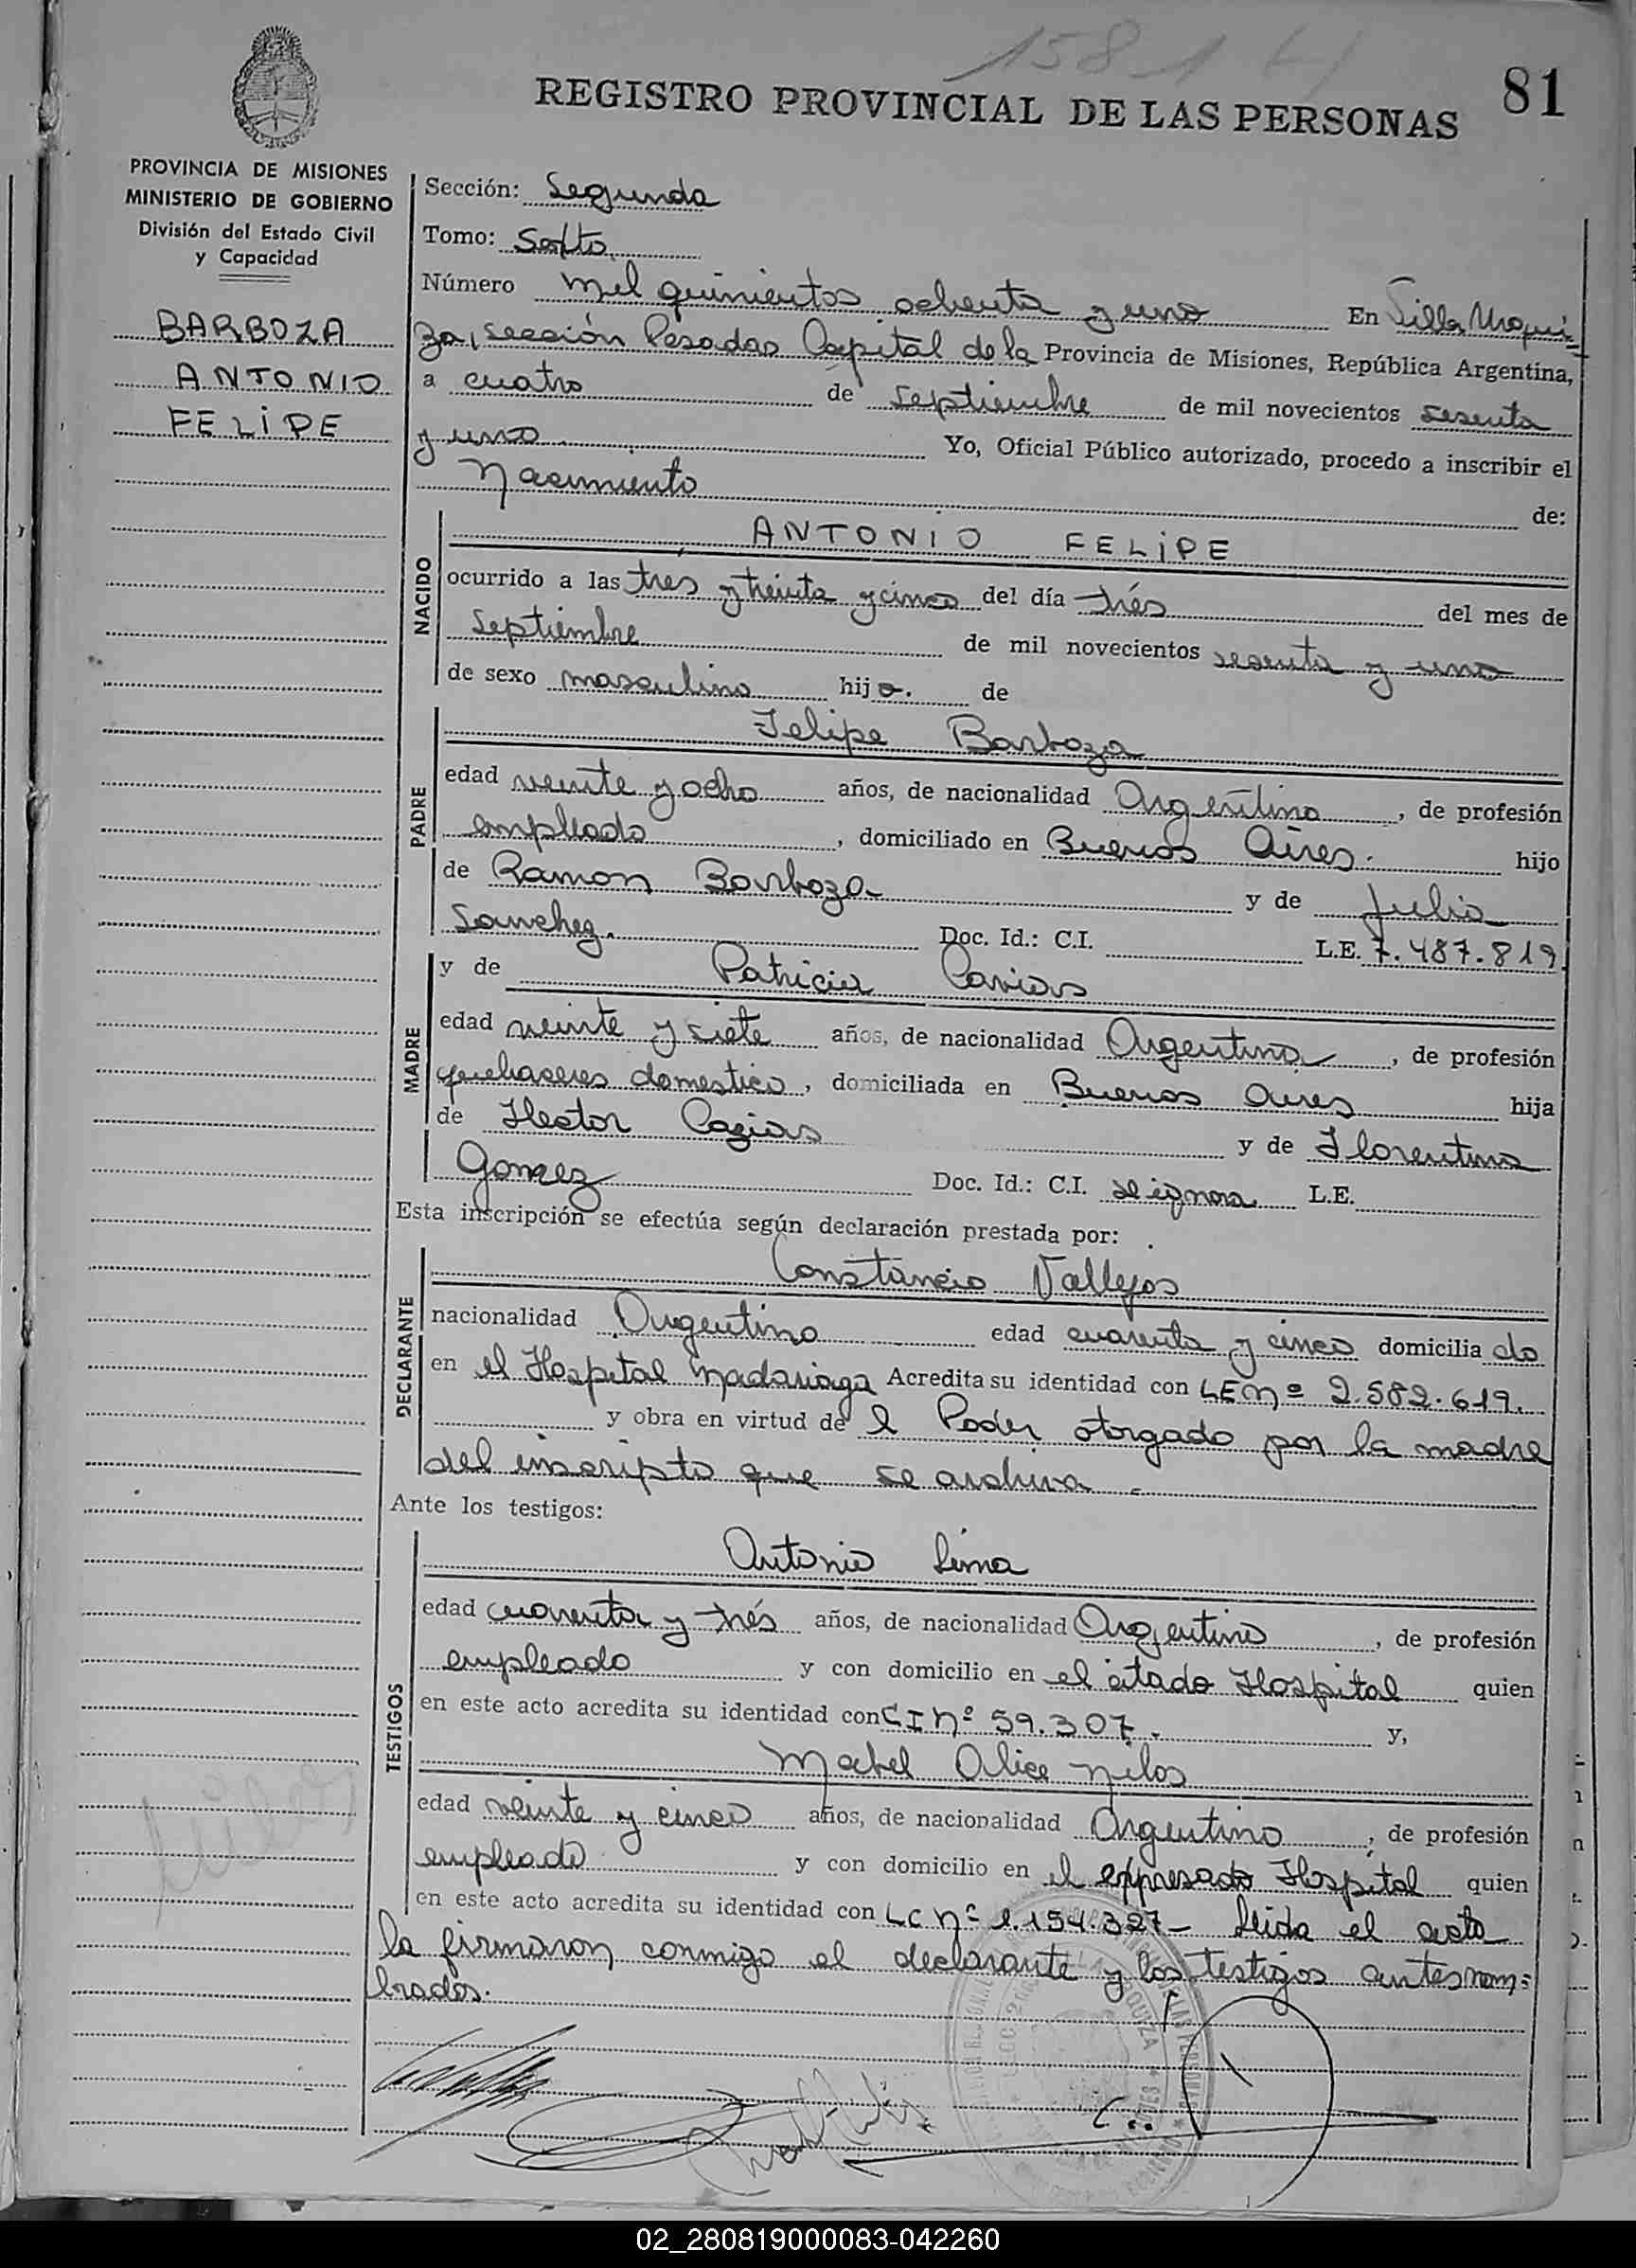 1581 4
81
REGISTRO PROVINCIAL DE LAS PERSONAS
PROVINCIA DE MISIONES
MINISTERIO DE GOBIERNO
División del Estado Civil
y Capacidad
BARBOZA
ANTONIO
FELIPE
Sección: Segunda
Tomo: Sexto
Número mil quinientos ochenta y uno En Villa Urqui=
za, sección Posadas Capital de la Provincia de Misiones, República Argentina,
a cuatro de septiembre de mil novecientos sesenta
y uno Yo, Oficial Público autorizado, procedo a inscribir el
Nacimiento de:
NACIDO
ANTONIO FELIPE
ocurrido a las tres y treinta y cinco del día trés del mes de
septiembre de mil novecientos sesenta y uno
de sexo masculino hijo. de
PADRE
Felipe Barboza
edad veinte y ocho años, de nacionalidad Argentino, de profesión
empleado, domiciliado en Buenos Aires. hijo
de Ramon Barboza y de Julia
Sanchez. Doc. Id.: C.I. L.E. 7.487.819
MADRE
y de Patricia
edad veinte y siete años, de nacionalidad Argentina, de profesión
quehaceres domestico, domiciliada en Buenos Aires hija
de Hector y de Florentina
Gomez Doc. Id.: C.I. se ignora L.E.
Esta inscripción se efectúa según declaración prestada por:
DECLARANTE
Constancio Vallejos
nacionalidad Argentino edad cuarenta y cinco domicilia do
en el Hospital Madariaga Acredita su identidad con LE Nº 2.582.619.
y obra en virtud de l Poder otorgado por la madre
del inscripto que se archiva -
Ante los testigos:
TESTIGOS
Antonio Lima
edad cuarenta y trés años, de nacionalidad Argentino, de profesión
empleado y con domicilio en el citado Hospital quien
en este acto acredita su identidad con C I Nº 59.307. y,
Mabel Alice
edad veinte y cinco años, de nacionalidad Argentino, de profesión
empleado y con domicilio en el expresado Hospital quien
en este acto acredita su identidad con LC Nº 1.154.327- Leida el acta
la firmaron conmigo el declarante y los testigos antesnom=
brados.
02_280819000083-042260